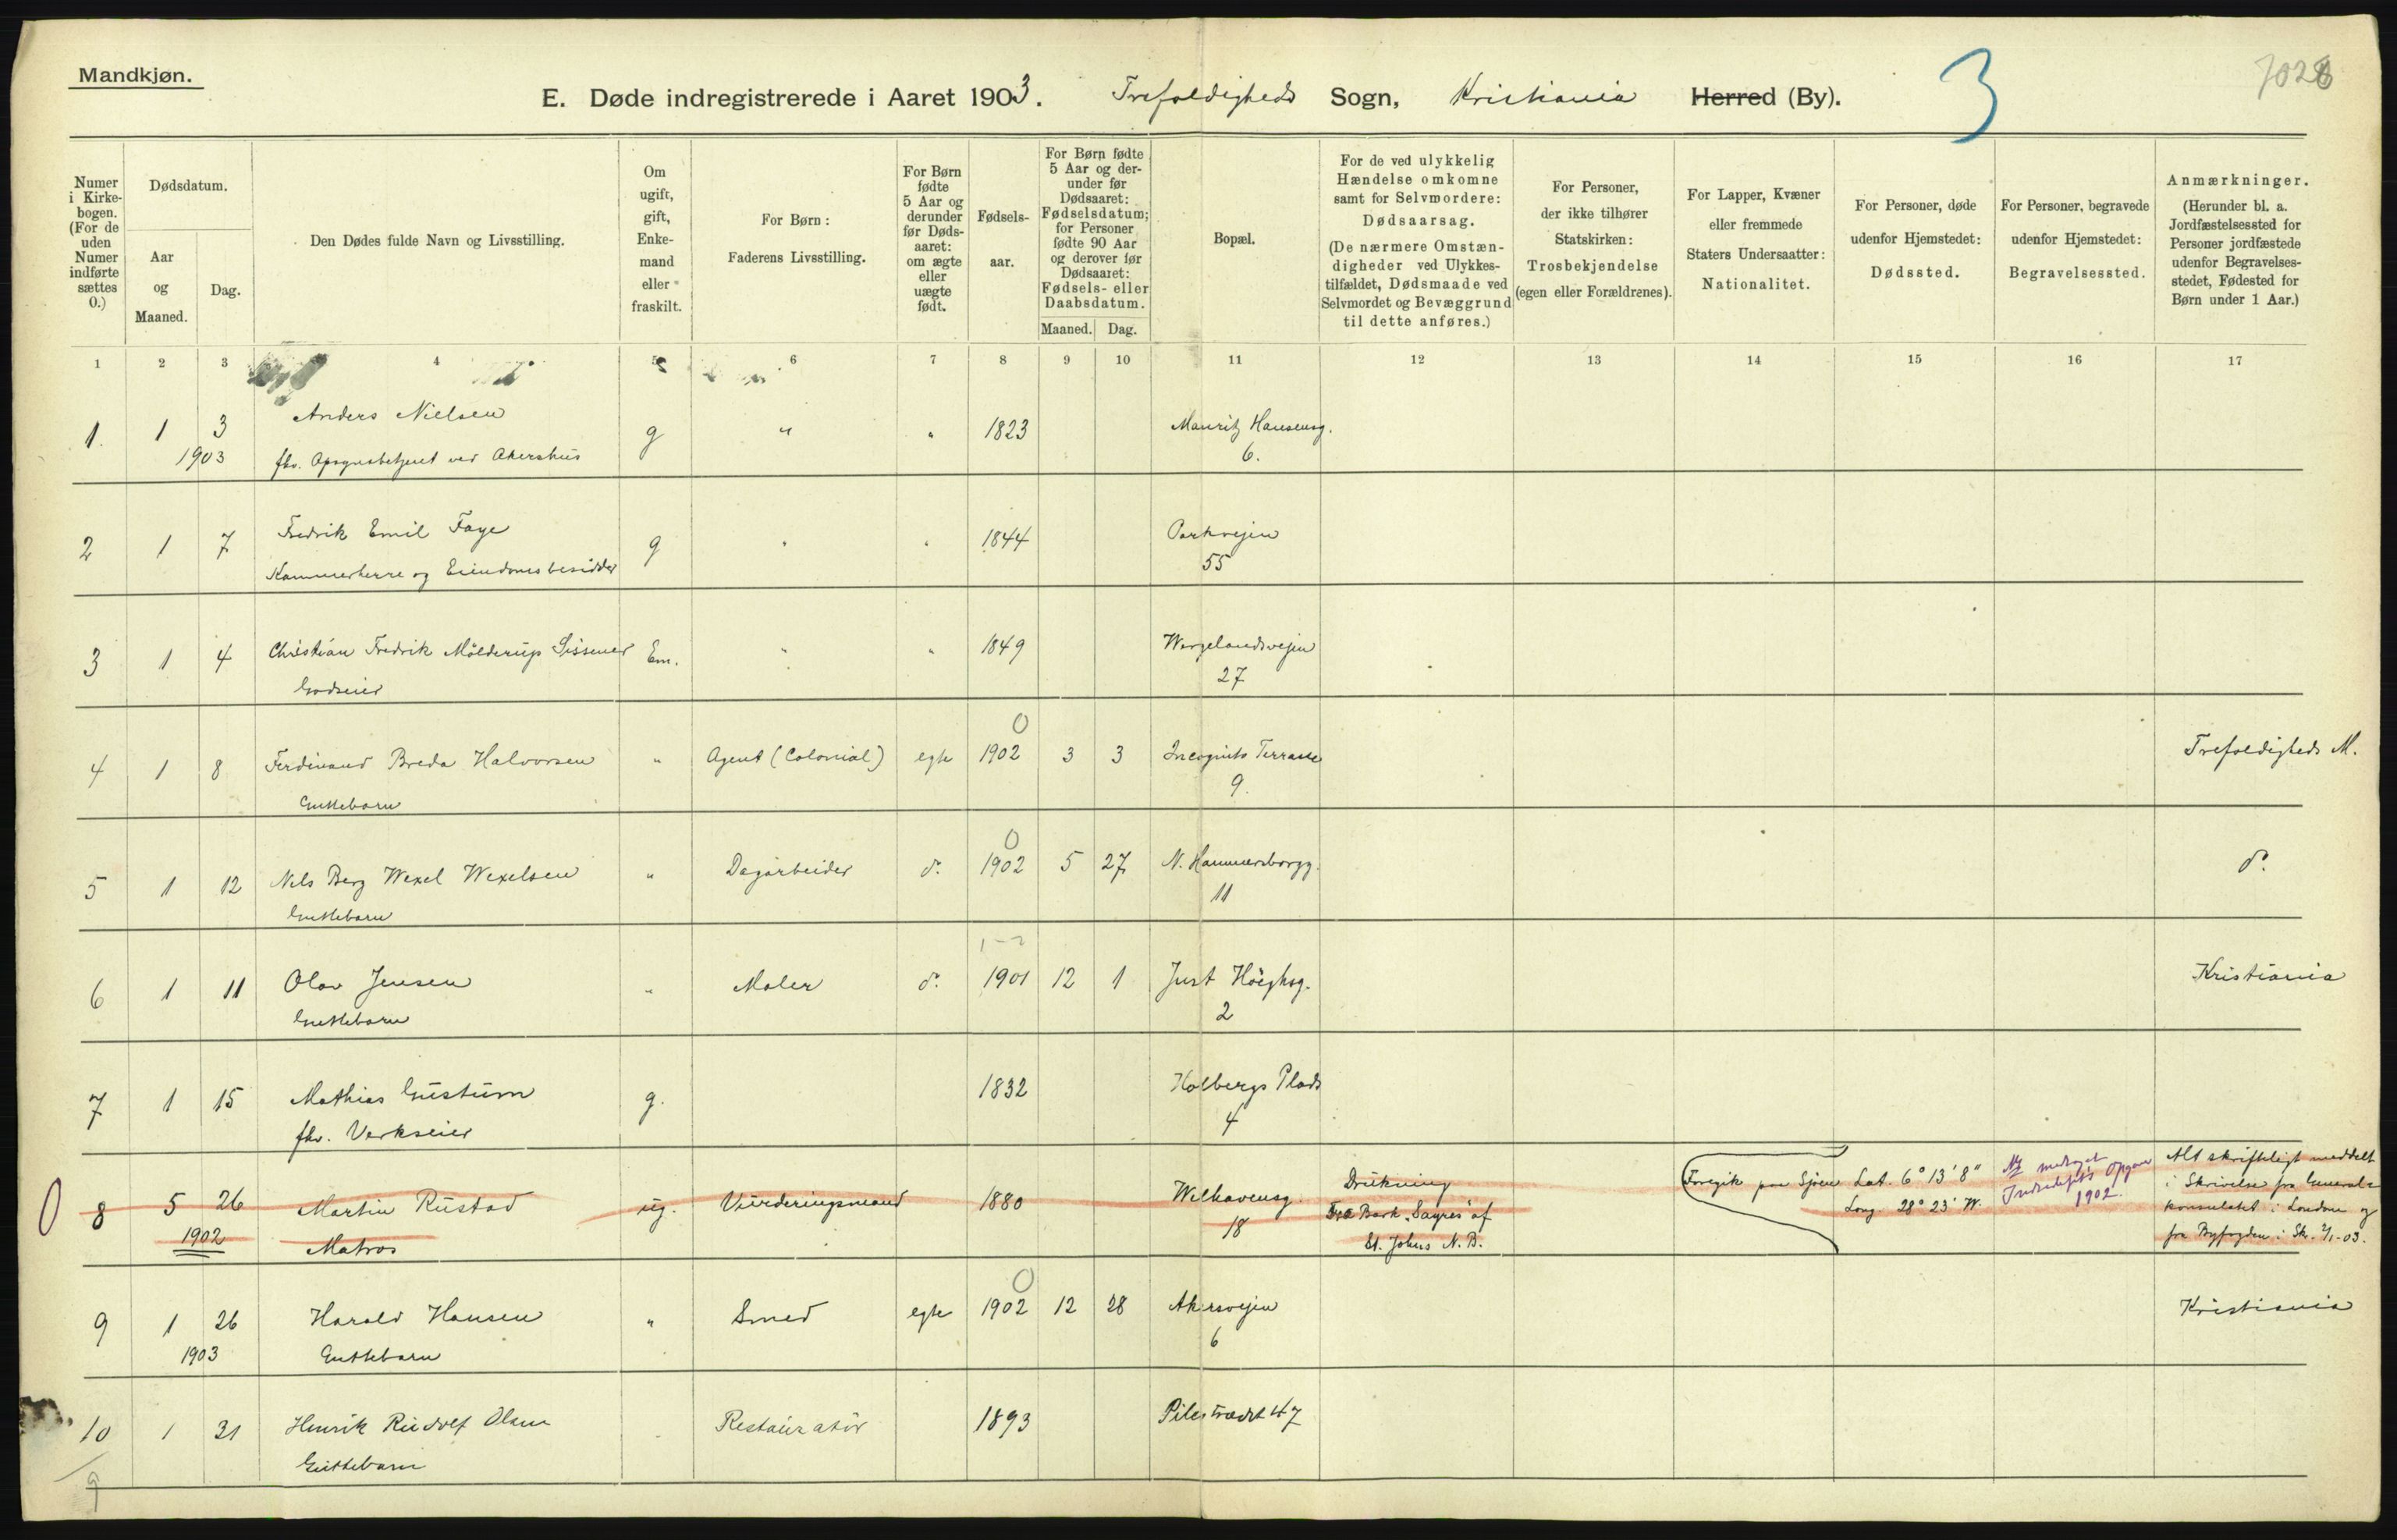 Mandkjøn.
E. Døde indregistrerede i Aaret 1903. Trefoldigheds Sogn, Kristiania Herred (By).
3
Numer i Kirkebogen. (For de uden Numer indførte sættes 0.)
Dødsdatum.
Aar og Maaned.
Dag.
Den Dødes fulde Navn og Livsstilling.
Om ugift, gift, Enkemand eller fraskilt.
For Børn: Faderens Livsstilling.
For Børn fødte 5 Aar og derunder før Dødsaaret: om ægte eller uægte født.
Fødselsaar.
For Børn fødte 5 Aar og derunder før Dødsaaret: Fødselsdatum; for Personer fødte 90 Aar og derover før Dødsaaret: Fødsels- eller Daabsdatum.
Maaned. Dag.
Bopæl.
For de ved ulykkelig Hændelse omkomne samt for Selvmordere: Dødsaarsag. (De nærmere Omstændigheder ved Ulykkestilfældet, Dødsmaade ved Selvmordet og Bevæggrund til dette anføres.)
For Personer, der ikke tilhører Statskirken: Trosbekjendelse (egen eller Forældrenes).
For Lapper, Kvæner eller fremmede Staters Undersaatter: Nationalitet.
For Personer, døde udenfor Hjemstedet: Dødssted.
For Personer, begravede udenfor Hjemstedet: Begravelsessted.
Anmærkninger. (Herunder bl. a. Jordfæstelsessted for Personer jordfæstede udenfor Begravelsesstedet, Fødested for Børn under 1 Aar.)
1 2 3 4 5 6 7 8 9 10 11 12 13 14 15 16 17
1. 1 3 Anders Nielsen g " " 1823 Mauritz Hansensg.
1903 fhv. Opsynsbetjent ved Akershus 6.
2 1 7 Fredrik Emil Faye g " " 1844 Parkvejen
Kammerherre og Eiendomsbesidder 55
3 1 4 Christian Fredrik Mölderup Sissener Em. " " 1849 Wergelandsvejen
Godseier 27
0
4 1 8 Ferdinand Breda Halvorsen " Agent (Colonial) egte 1902 3 3 Incognito Terrasse Trefoldigheds M.
Guttebarn 9.
0
5 1 12 Nils Berg Wexel Wexelsen " Dagarbeider do. 1902 5 27 N. Hammersborgg. do.
Guttebarn 11
6 1 11 Olav Jensen " Maler do. 1901 12 1 Just Höeghsg. Kristiania
Guttebarn 2
7 1 15 Mathias Gustum g. 1832 Holbergs Plads
fhv. Verkseier 4
0 8 5 26 Martin Rustad ug. Vurderingsmand 1880 Welhavensg. 18
1902 Matros
Drukning
Fra Bark "Sayres" af
St. Johns N. B.
Foregik paa Sjøen Lat. 6° 13' 8"
Long. 28° 23' W.
1902.
Alt skriftligt meddelt
i Skrivelse fra Generalkonsulatet i London og
fra Byfogden i Skr.
0
9 1 26 Harald Hansen " Smed egte 1902 12 28 Akersvejen Kristiania
1903 Guttebarn 6
10 1 31 Henrik Rudolf Olsen Restauratör 1893 Pilestrædet 47
Guttebarn
9